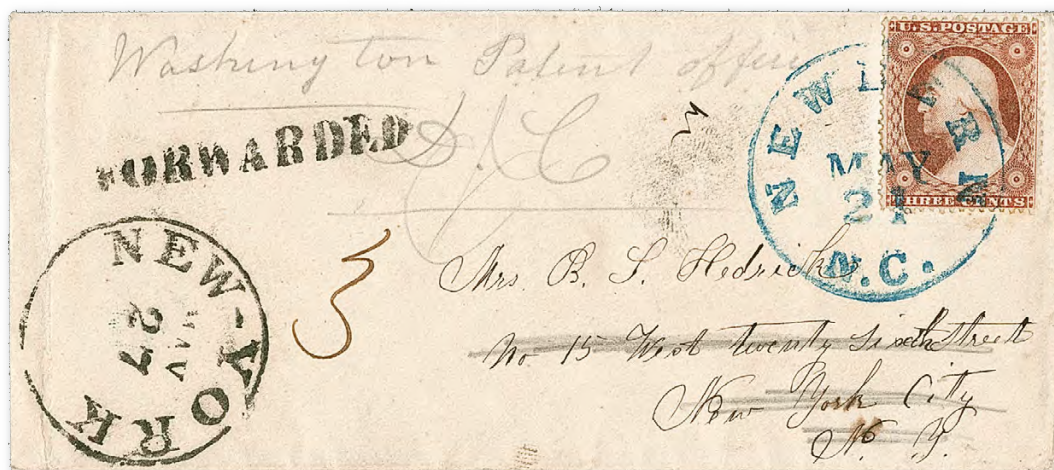 Washington Patent office
D. C
FORWARDED
U.S. POSTAGE
THREE CENTS
NEW BERN
MAY
21
N.C.
NEW-YORK
MAY
27
3
Mrs B. S. Hedrick
No 15 West twenty Sixth Street
New York City
N. Y.